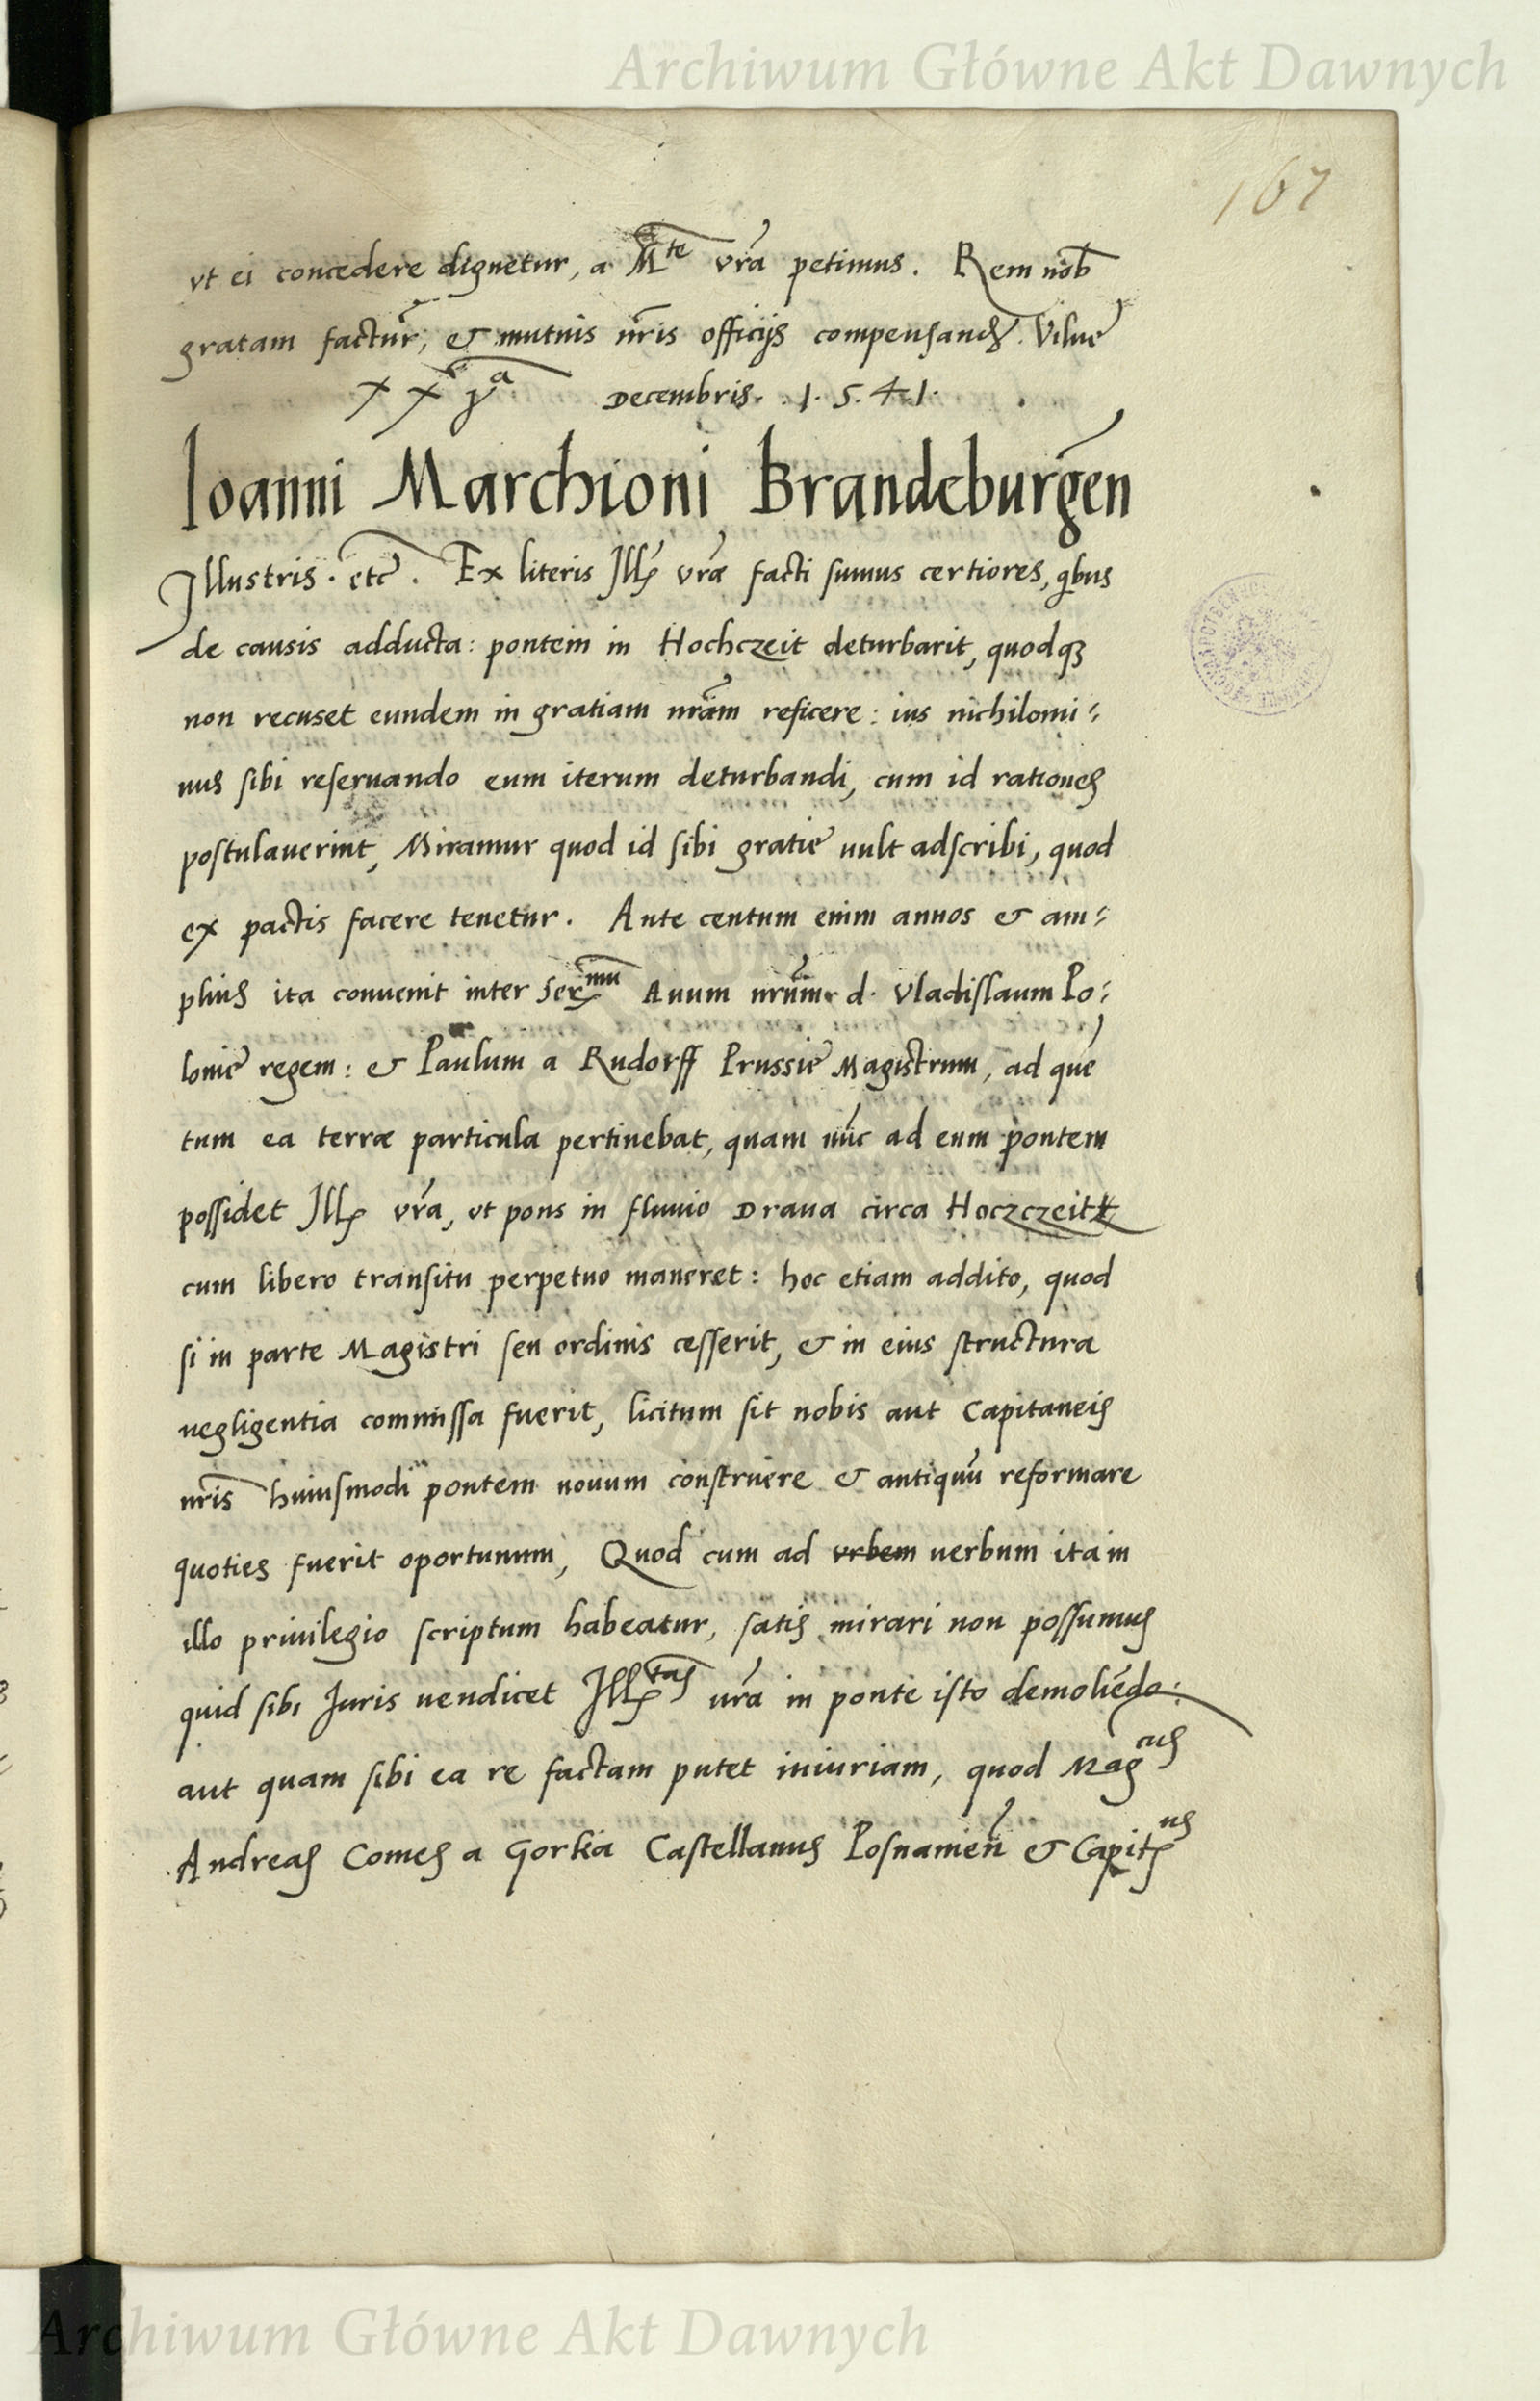 Archiwum Główne Akt Dawnych
167
vt ei concedere dignetur, a M^te vrã petimus. Rem nob
gratam factur̃, & mutuis nr̃is officijs compensand. Vilne
XXV^a Decembris. 1.5.41.
Ioanni Marchioni Brandeburgeñ
Illustris. etc̃. Ex literis Ill vrae facti sumus certiores, qbus
de causis adducta: pontem in Hochczeit deturbarit, quodq3
non recuset eundem in gratiam nrãm reficere: ius nichilomi-
nus sibi reseruando eum iterum deturbandi, cum id rationes
postulauerint, Miramur quod id sibi gratie vult adscribi, quod
ex pactis facere tenetur. Ante centum enim annos & am-
plius ita conuenit inter Ser^mu Auum nrũm d. Vladislaum Po-
lonie regem: & Paulum a Rudorff Prussie Magistrum, ad que
tum ea terrae particula pertinebat, quam nũc ad eum pontem
possidet Ill vrã, vt pons in fluuio Draua circa Hoczczeitt
cum libero transitu perpetuo maneret: hoc etiam addito, quod
si in parte Magistri seu ordinis cesserit, & in eius structura
negligentia commissa fuerit, licitum sit nobis aut Capitaneis
nr̃is huiusmodi pontem nouum construere & antiquũ reformare
quoties fuerit oportunum, Quod cum ad vrbem uerbum ita in
illo priuilegio scriptum habeatur, satis mirari non possumus
quid sibi Iuris uendicet Ill^tas vrã in ponte isto demoliẽdo:
aut quam sibi ea re factam putet iniuriam, quod Mag^cus
Andreas Comes a Gorka Castellanus Posnamień & Capit^us
Archiwum Główne Akt Dawnych